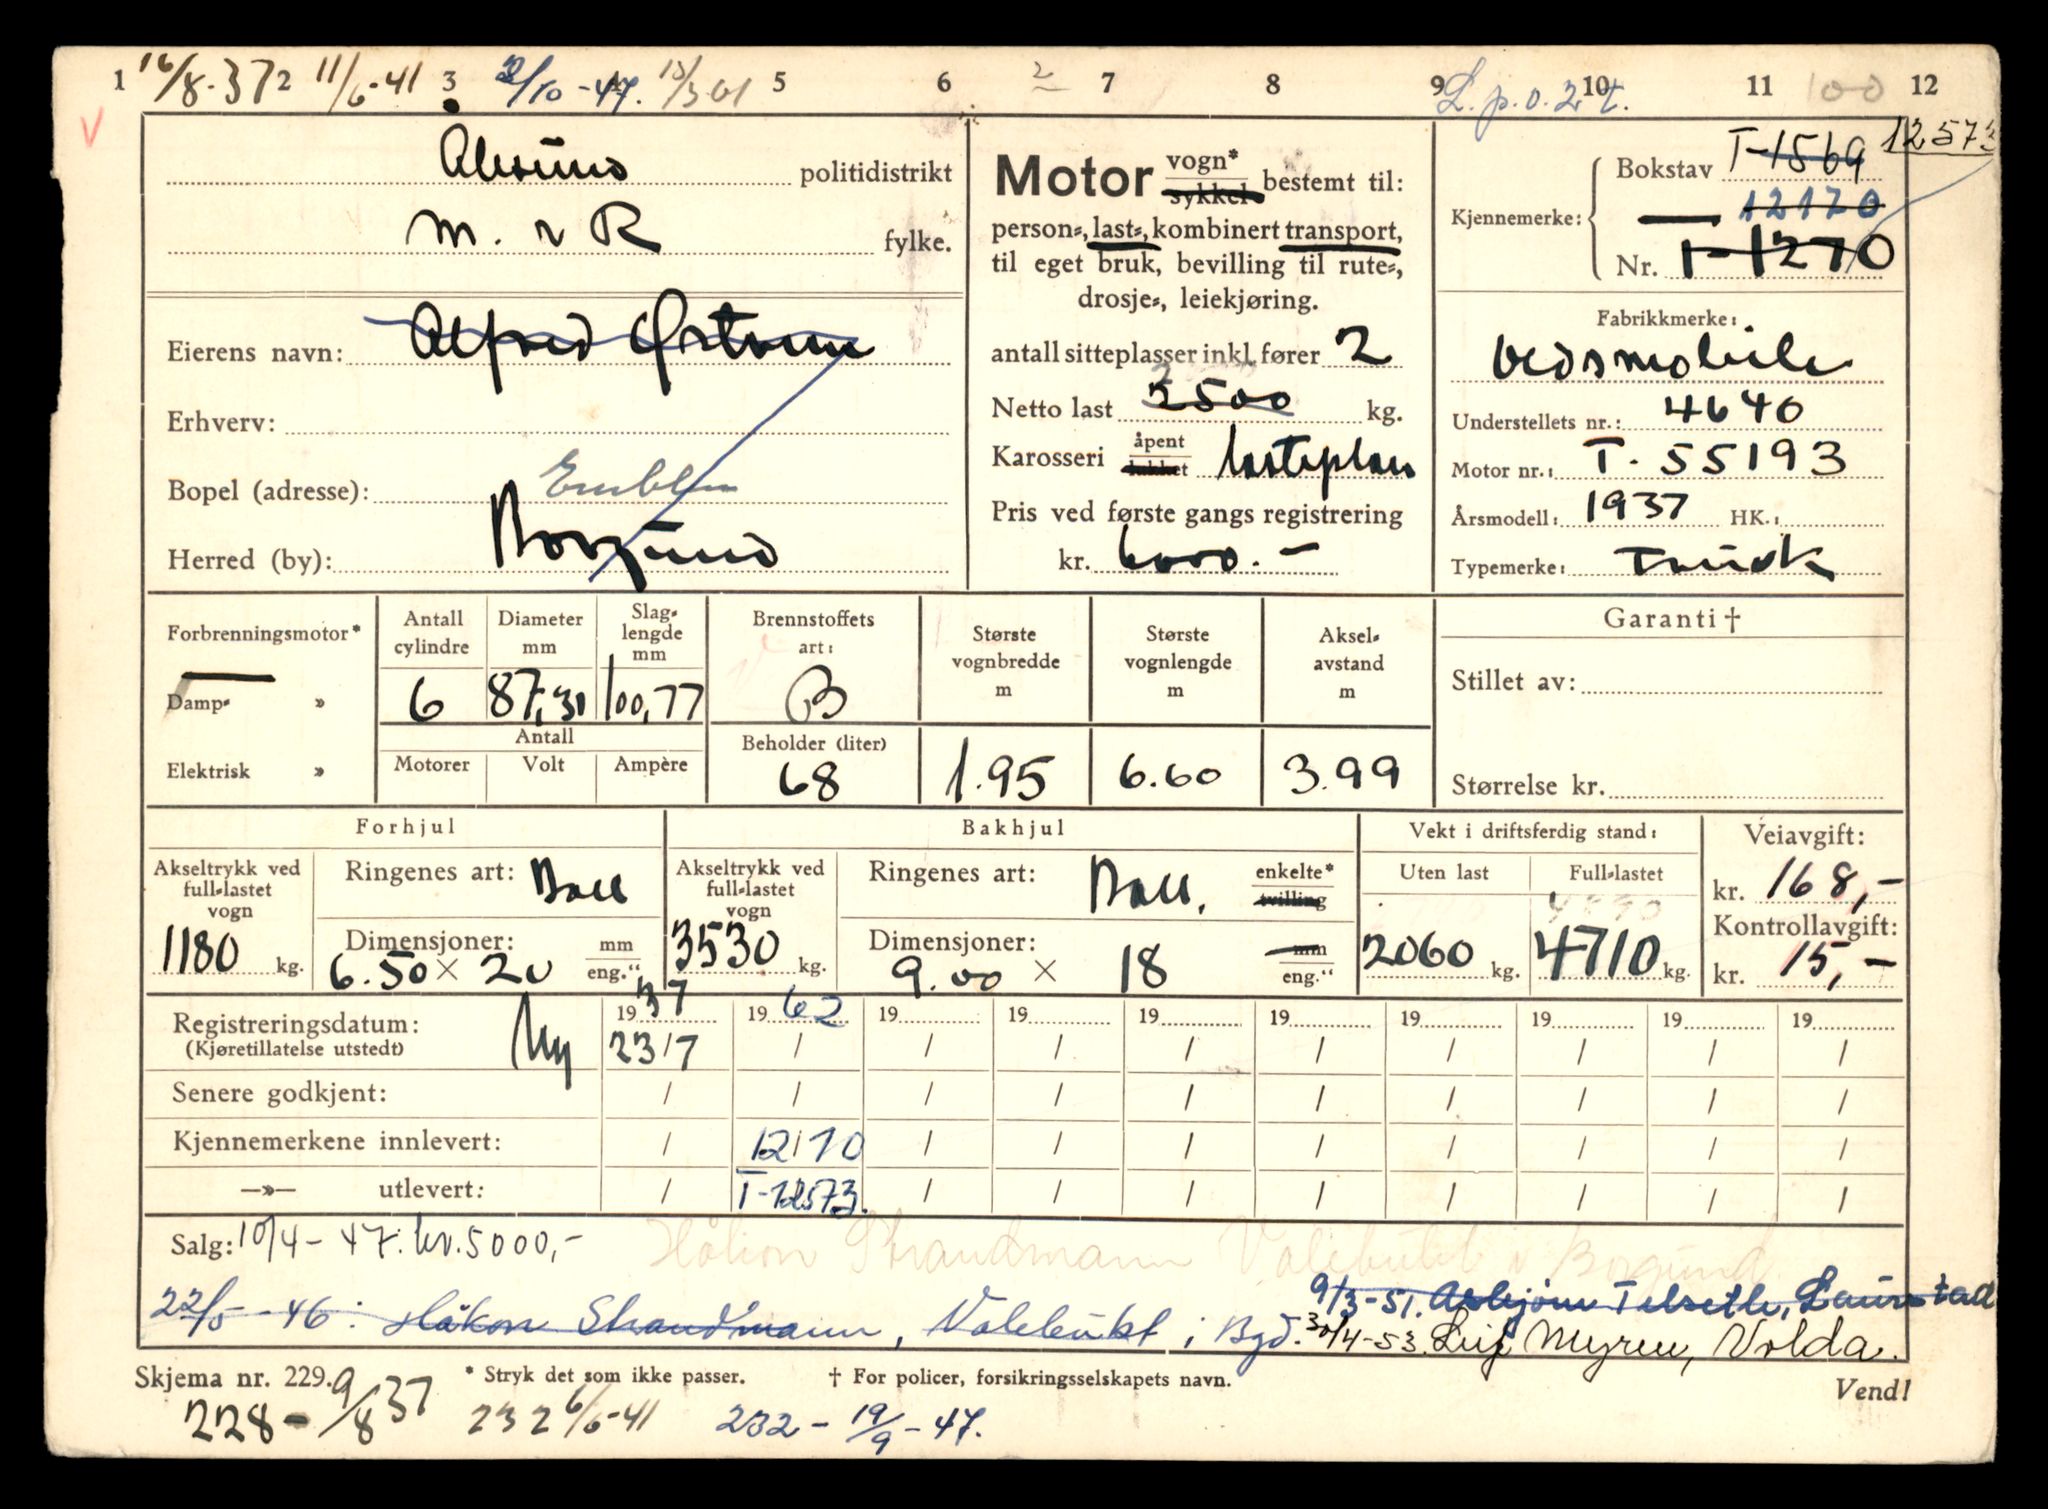 1 16/8-37 2 11/6-41 3 /10-47. 4 5 6 2 7 8 9 10 11 100 12
L.p.o. 2 t.
Ålesund politidistrikt
M. & R fylke.
Eierens navn: Alfred Østrem
Erhverv:
Bopel (adresse): Emblem
Herred (by): Borgund
Motor vogn* sykkel bestemt til:
person-, last-, kombinert transport,
til eget bruk, bevilling til rute-,
drosje-, leiekjøring.
antall sitteplasser inkl. fører 2
Netto last 2500 kg.
Karosseri åpent lukket lasteplan
Pris ved første gangs registrering
kr. 6000.-
Kjennemerke: Bokstav T-1569 12573
12170
Nr. T-1270
Fabrikkmerke:
Oldsmobile
Understellets nr.: 4640
Motor nr.: T. 55193
Årsmodell: 1937 HK.:
Typemerke: Truck
Forbrenningsmotor*
Damp- »
Elektrisk »
Antall cylindre 6
Diameter mm 87,30
Slaglengde mm 100,77
Antall
Motorer Volt Ampère
Brennstoffets art: B
Beholder (liter) 68
Største vognbredde m 1.95
Største vognlengde m 6.60
Akselavstand m 3.99
Garanti †
Stillet av:
Størrelse kr.
Forhjul
Akseltrykk ved full-lastet vogn 1180 kg.
Ringenes art: Ball
Dimensjoner: mm
6.50 × 20 eng."
Bakhjul
Akseltrykk ved full-lastet vogn 3530 kg.
Ringenes art: Ball. enkelte* tvilling
Dimensjoner: mm
9.00 × 18 eng."
Vekt i driftsferdig stand:
Uten last 2060 kg.
Full-lastet 4710 kg.
Veiavgift:
kr. 168,-
Kontrollavgift:
kr. 15,-
Registreringsdatum: Ny 1937 1962 19 19 19 19 19 19 19 19
(Kjøretillatelse utstedt) 23/7 / / / / / / / / /
Senere godkjent: / / / / / / / / / /
Kjennemerkene innlevert: / 12/10 / / / / / / / /
—»— utlevert: / T-12573. / / / / / / / /
Salg: 10/4-47: kr. 5000,- Håkon Strandmann Valebukt i Borgund
9/3-51. Asbjørn Telsetle, Laurstad
22/5-46: Håkon Strandmann, Valebukt i Bgd. 30/4-53. Leif Myren, Volda.
Skjema nr. 229. * Stryk det som ikke passer. † For policer, forsikringsselskapets navn. Vend!
228 - 9/8 37 232 6/6-41 232 - 19/9-47.